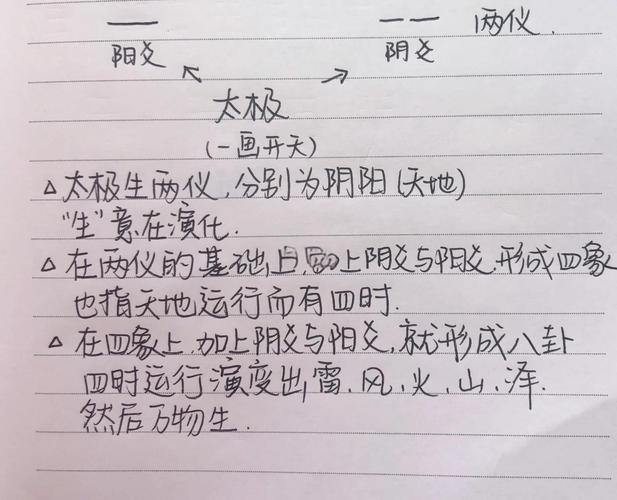 阳爻 阴爻 两仪.
太极
(一画开天)
△太极生两仪,分别为阴阳(天地)
"生"意在演化.
△在两仪的基础上,加上阴爻与阳爻,形成四象
也指天地运行而有四时.
△在四象上,加上阴爻与阳爻,就形成八卦
四时运行演变出,雷、风、火、山、泽.
然后万物生.